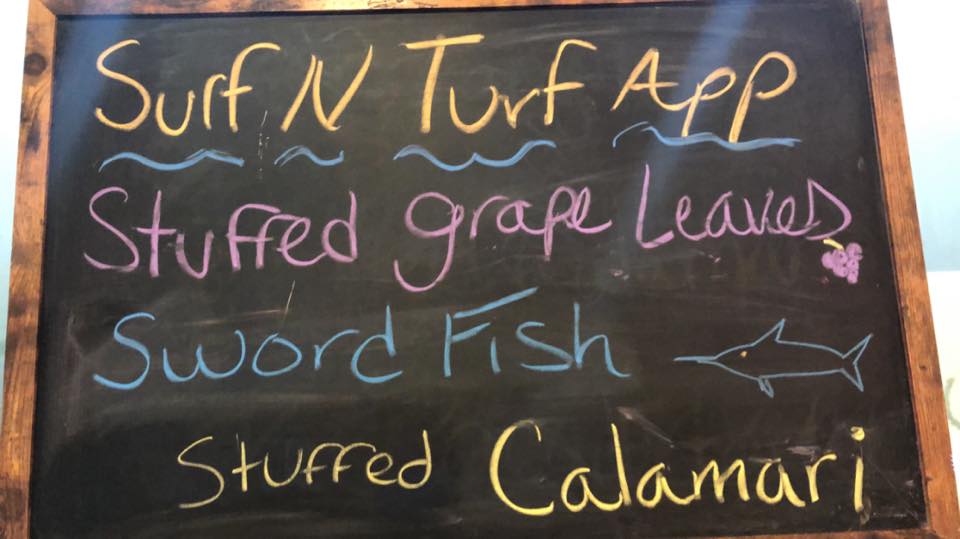 Surf N Turf App
Stuffed grape Leaves
Sword Fish
Stuffed Calamari